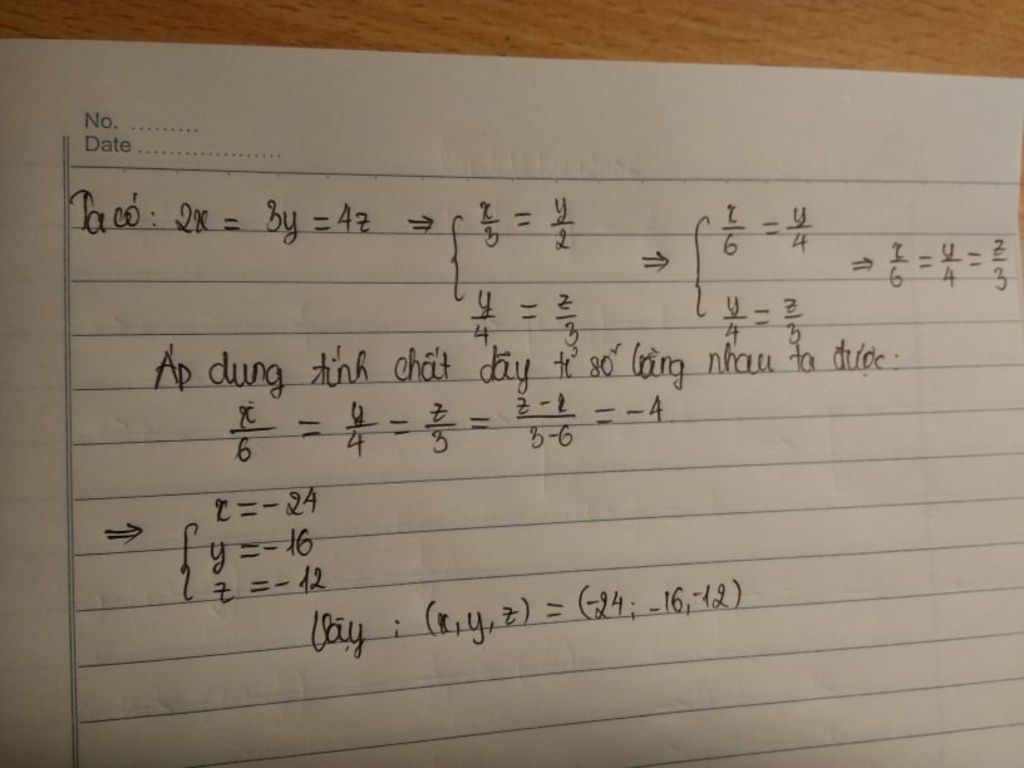 No. .........
Date ...................
Ta có: 2x = 3y = 4z ⇒ { x/3 = y/2 ; y/4 = z/3 ⇒ { x/6 = y/4 ; y/4 = z/3 ⇒ x/6 = y/4 = z/3
Áp dụng tính chất dãy tỉ số bằng nhau ta được:
x/6 = y/4 = z/3 = (z-x)/(3-6) = -4
⇒ { x = -24
y = -16
z = -12
Vậy : (x,y,z) = (-24; -16,-12)